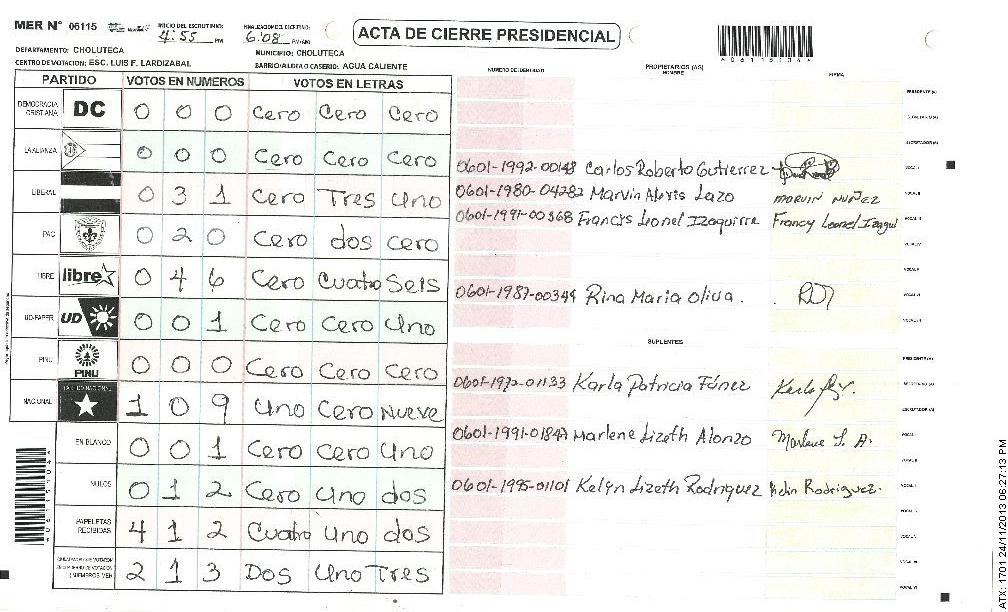 MER N° 06115 INICIO DEL ESCRUTINIO: 4:55 PM 6:08 PM/AM
ACTA DE CIERRE PRESIDENCIAL
*061151364*
DEPARTAMENTO: CHOLUTECA MUNICIPIO: CHOLUTECA
CENTRO DE VOTACION: ESC. LUIS F. LARDIZABAL BARRIO/ALDEA O CASERIO: AGUA CALIENTE
NUMERO DE IDENTIDAD PROPIETARIOS (AS) NOMBRE FIRMA
PARTIDO VOTOS EN NUMEROS VOTOS EN LETRAS
DEMOCRACIA CRISTIANA DC 0 0 0 Cero Cero Cero
LA ALIANZA 0 0 0 Cero Cero Cero
0601-1992-00148 Carlos Roberto Gutierrez
LIBERAL 0 3 1 Cero Tres Uno
0601-1980-04282 Marvin Alexis Lazo MARVIN NUÑEZ
0601-1991-00368 Francys Leonel Izaguirre Francy Leonel Izagui
PAC 0 2 0 Cero dos cero
LIBRE libre 0 4 6 Cero Cuatro Seis
0601-1987-00349 Rina Maria Oliva.
UD-FAPER UD 0 0 1 Cero Cero Uno
SUPLENTES
PINU PINU 0 0 0 Cero Cero Cero
0601-1972-01133 Karla Patricia Fúnez
NACIONAL PARTIDO NACIONAL 1 0 9 Uno Cero Nueve
EN BLANCO 0 0 1 Cero Cero Uno
0601-1991-01847 Marlene Lizeth Alonzo Marlene L. A.
NULOS 0 1 2 Cero Uno dos
0601-1995-01101 Kelyn Lizeth Rodriguez Kelin Rodriguez.
PAPELETAS RECIBIDAS 4 1 2 Cuatro Uno dos
2 1 3 Dos Uno Tres
ATX: 1701 24/11/2013 06:27:13 PM